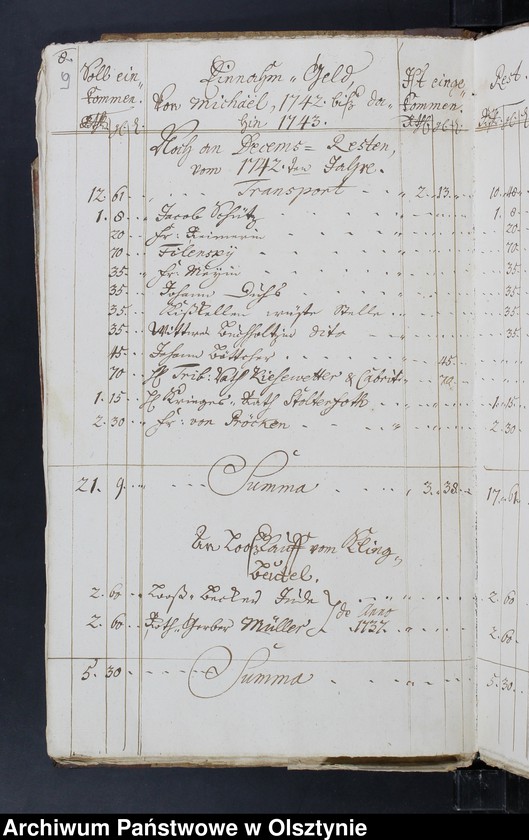 8.
9
Soll ein, Einnahm Geld, Ist einge, Rest
kommen. Von Michael, 1742 biß da- kommen.
hin 1743.
Noch an Decems = Resten,
vom 1742 den Jahre.
12 61 Transport 2 13 10 48
1 8 Jacob Schütz 1 8
20 Fr: Reimerin 20
70 Filensky 70
35 Fr: Meyin 35
35 Johann 35
35 wüste Stelle 35
35 Wittwe Buchholtzin dito 35
45 Johann Böttcher 45
70 H Trib: Rath Kiesewetter & 70
1 15 H Krieges Rath Stolterfoth 1 15
2 30 Fr: von Pröcken 2 30
21 9 Summa 3 38 17 61
An vom Kling
Beutel.
2 60 Looß Becker de Anno 2 60
2 60 Roth Gerber Müller 1737 2 60
5 30 Summa 5 30
Archiwum Państwowe w Olsztynie